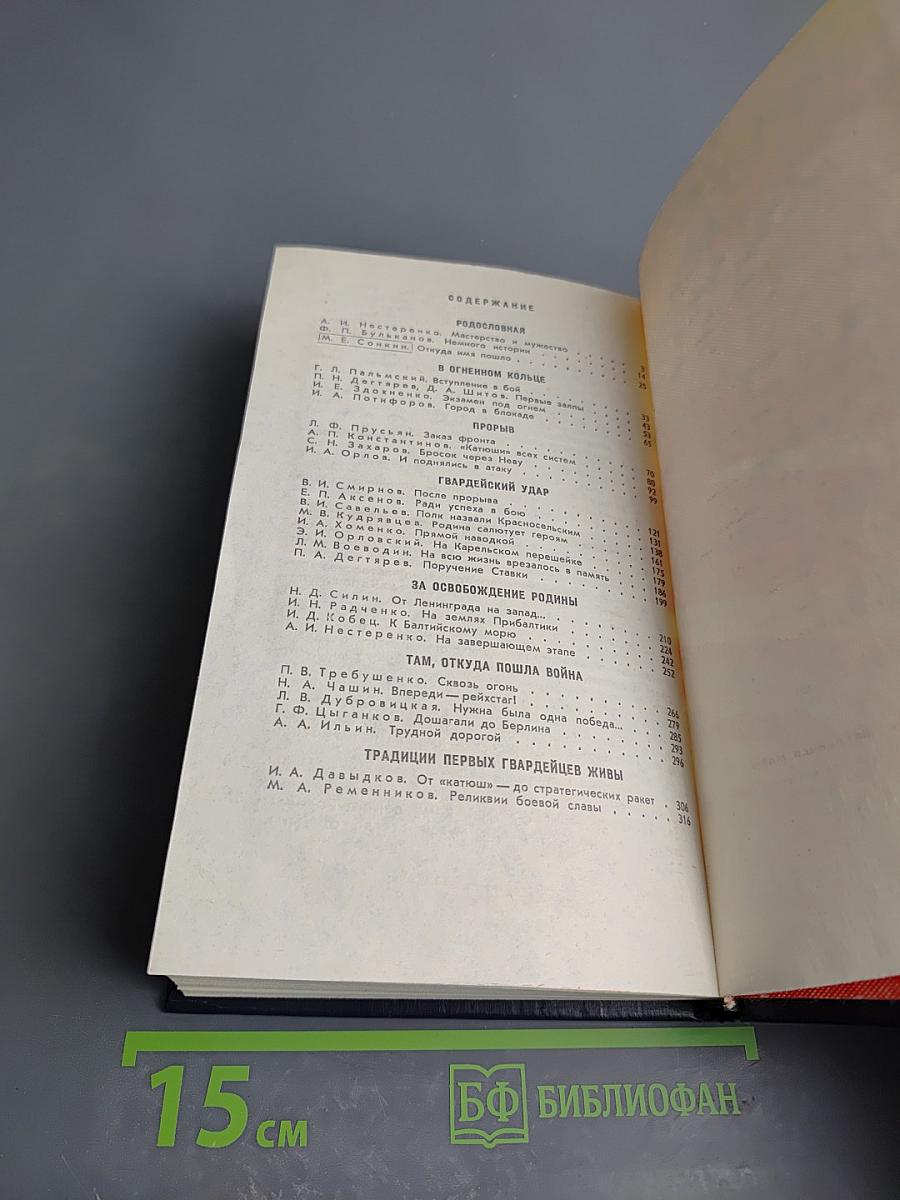 СОДЕРЖАНИЕ
РОДОСЛОВНАЯ
А. И. Нестеренко. Мастерство и мужество . . . . . 3
Ф. П. Бульканов. Немного истории . . . . . 14
М. Е. Сонкин. Откуда имя пошло . . . . . 25
В ОГНЕННОМ КОЛЬЦЕ
Г. Л. Пальмский. Вступление в бой . . . . . 33
П. Н. Дегтярев, Д. А. Шитов. Первые залпы . . . . . 43
И. Е. Здохненко. Экзамен под огнем . . . . . 53
И. А. Потифоров. Город в блокаде . . . . . 65
ПРОРЫВ
Л. Ф. Прусьян. Заказ фронта . . . . . 70
А. П. Константинов. «Катюши» всех систем . . . . . 80
С. Н. Захаров. Бросок через Неву . . . . . 92
И. А. Орлов. И поднялись в атаку . . . . . 99
ГВАРДЕЙСКИЙ УДАР
В. И. Смирнов. После прорыва . . . . . 121
Е. П. Аксенов. Ради успеха в бою . . . . . 131
В. И. Савельев. Полк назвали Красносельским . . . . . 138
М. В. Кудрявцев. Родина салютует героям . . . . . 161
И. А. Хоменко. Прямой наводкой . . . . . 175
Э. И. Орловский. На Карельском перешейке . . . . . 179
Л. М. Воеводин. На всю жизнь врезалось в память . . . . . 186
П. А. Дегтярев. Поручение Ставки . . . . . 199
ЗА ОСВОБОЖДЕНИЕ РОДИНЫ
Н. Д. Силин. От Ленинграда на запад... . . . . . 210
И. Н. Радченко. На землях Прибалтики . . . . . 224
И. Д. Кобец. К Балтийскому морю . . . . . 242
А. И. Нестеренко. На завершающем этапе . . . . . 252
ТАМ, ОТКУДА ПОШЛА ВОЙНА
П. В. Требушенко. Сквозь огонь . . . . . 266
Н. А. Чашин. Впереди — рейхстаг! . . . . . 279
Л. В. Дубровицкая. Нужна была одна победа... . . . . . 285
Г. Ф. Цыганков. Дошагали до Берлина . . . . . 293
А. А. Ильин. Трудной дорогой . . . . . 296
ТРАДИЦИИ ПЕРВЫХ ГВАРДЕЙЦЕВ ЖИВЫ
И. А. Давыдков. От «катюш» — до стратегических ракет . 306
М. А. Ременников. Реликвии боевой славы . . . . . 316
15 см
БФ БИБЛИОФАН